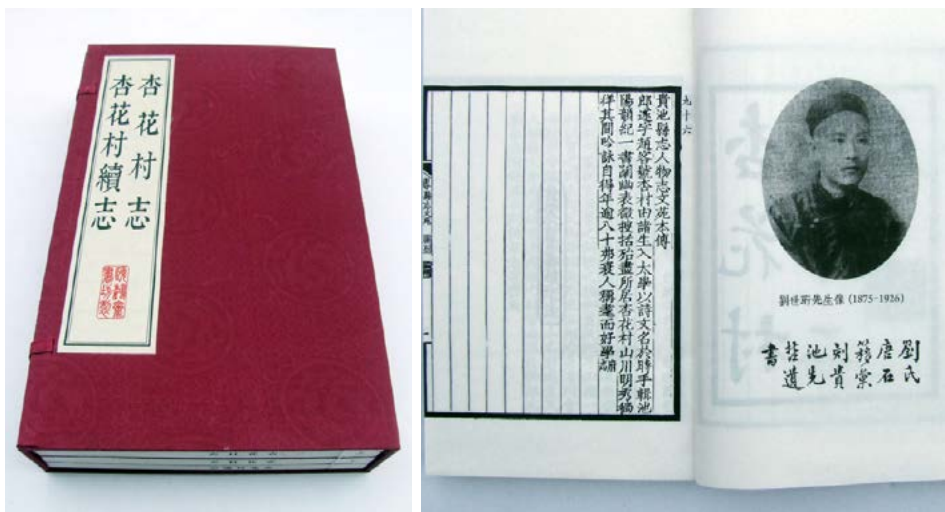 杏花村志
杏花村續志
九十六
貴池縣志人物志文苑本傳
郎遂字趙客號杏村由諸生入太學以詩文名於時手輯池
陽韻紀一書闡幽表微搜括殆盡所居杏花村山川明秀徜
徉其間吟詠自得年逾八十弗衰人稱耄而好學
劉世珩先生像 (1875-1926)
劉氏
唐石
簃彙
刻貴
池先
哲遺
書